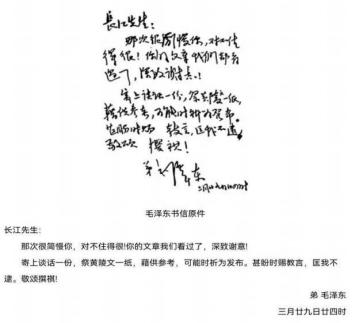 長江先生：
那次很简慢你，对不住
得很！你的文章我们都看
过了，深致谢意！
寄上谈话一份，祭黄陵文一纸，
藉供参考，可能时祈为发布。
甚盼时赐教言，匡我不逮。
敬颂撰祺！
弟毛泽东
毛泽东书信原件
长江先生：
那次很简慢你，对不住得很!你的文章我们看过了，深致谢意!
寄上谈话一份，祭黄陵文一纸，藉供参考，可能时祈为发布。甚盼时赐教言，匡我不
逮。敬颂撰祺!
弟 毛泽东
三月廿九日廿四时